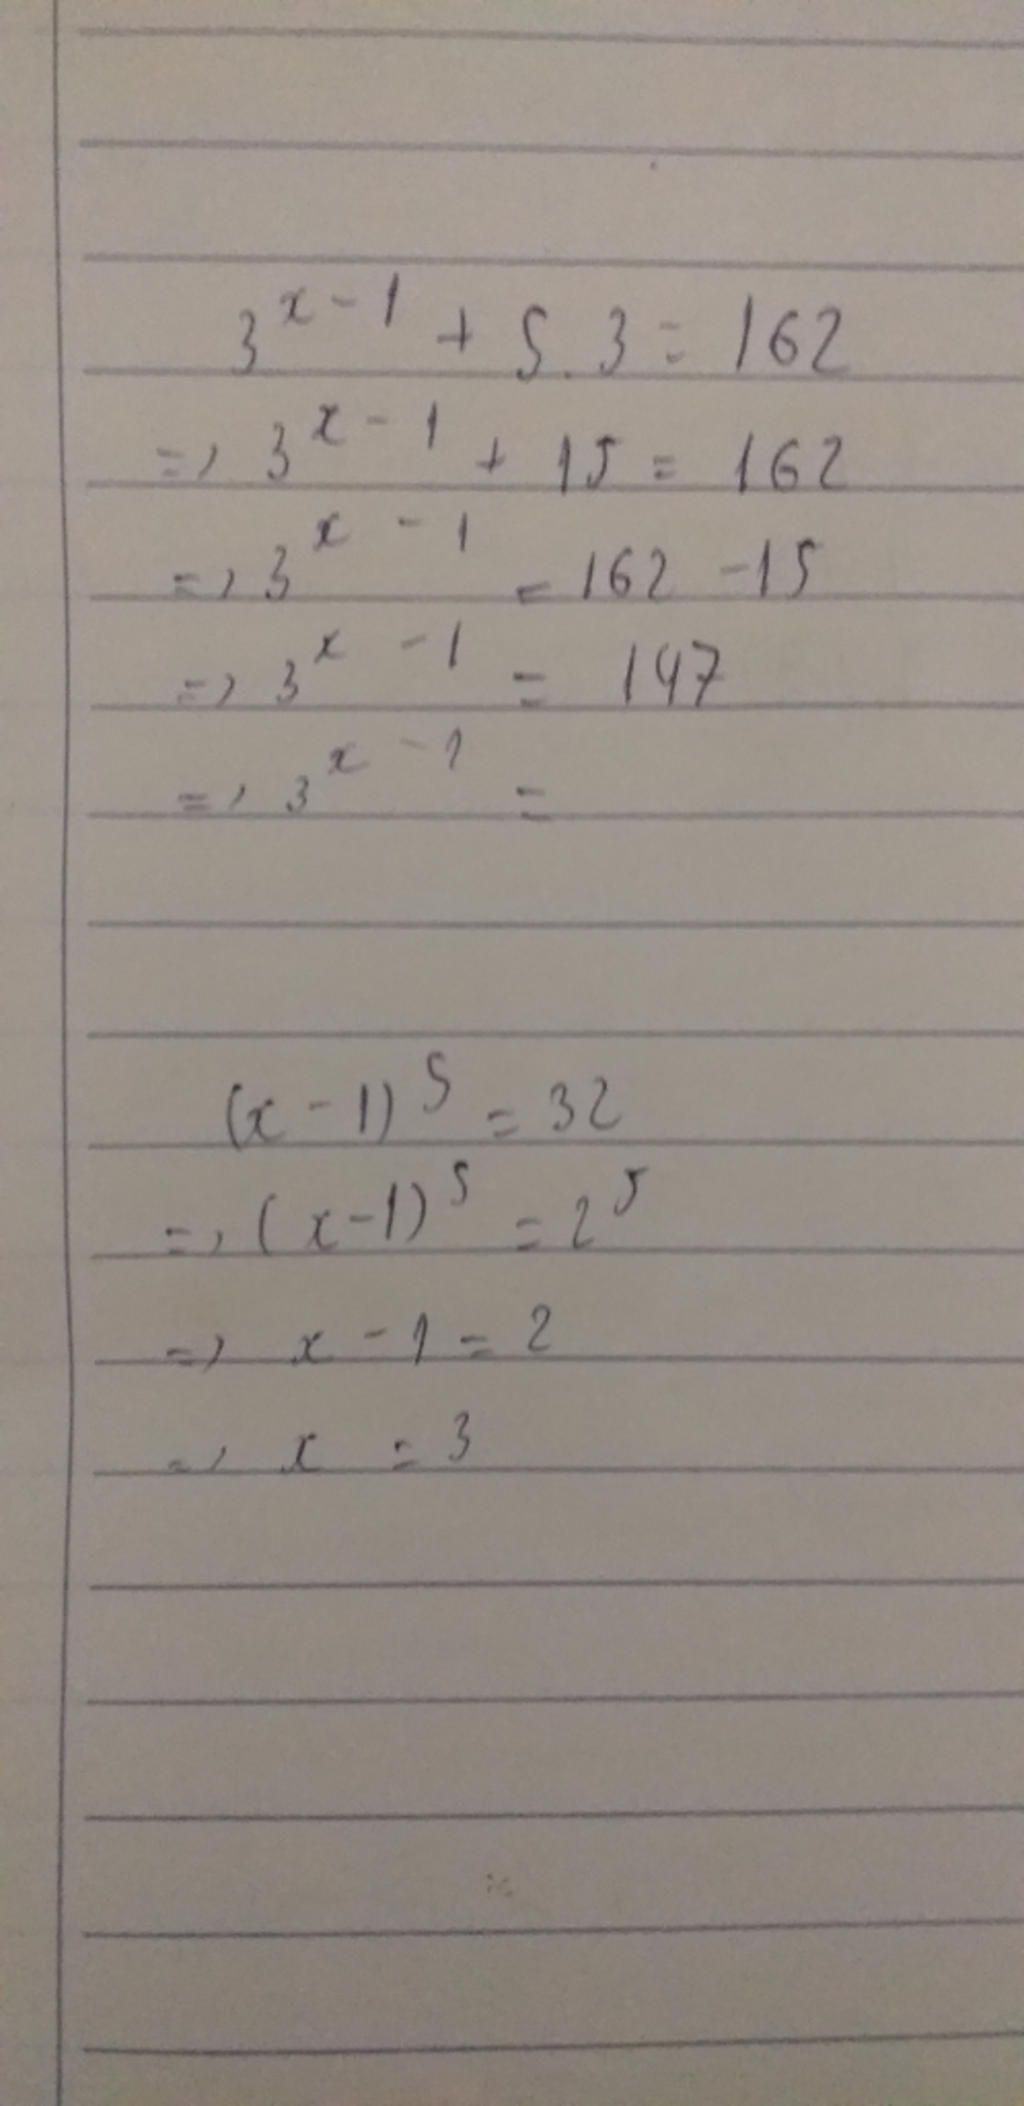 3^{x-1} + 5.3 = 162
=> 3^{x-1} + 15 = 162
=> 3^{x-1} = 162 - 15
=> 3^{x-1} = 147
=> 3^{x-1} =
(x-1)^5 = 32
=> (x-1)^5 = 2^5
=> x - 1 = 2
=> x = 3